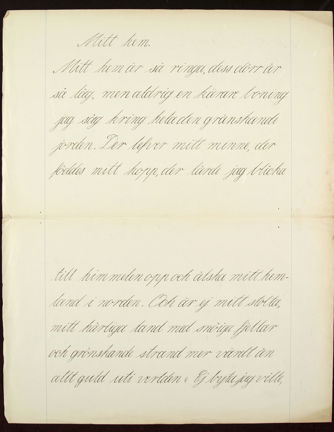 Mitt hem.
Mitt hem är så ringa, dess dörr är
så låg, men aldrig en kärare boning
jag såg kring hela den grönskande
jorden. Der lefver mitt minne, der
föddes mitt hopp, der lärde jag blicka
till himmelen opp och älska mitt hem-
land i norden. Och är ej mitt stolta,
mitt härliga land med snöiga fjellar
och grönskande strand mer värdt än
allt guld uti verlden? Ej byta jag ville,